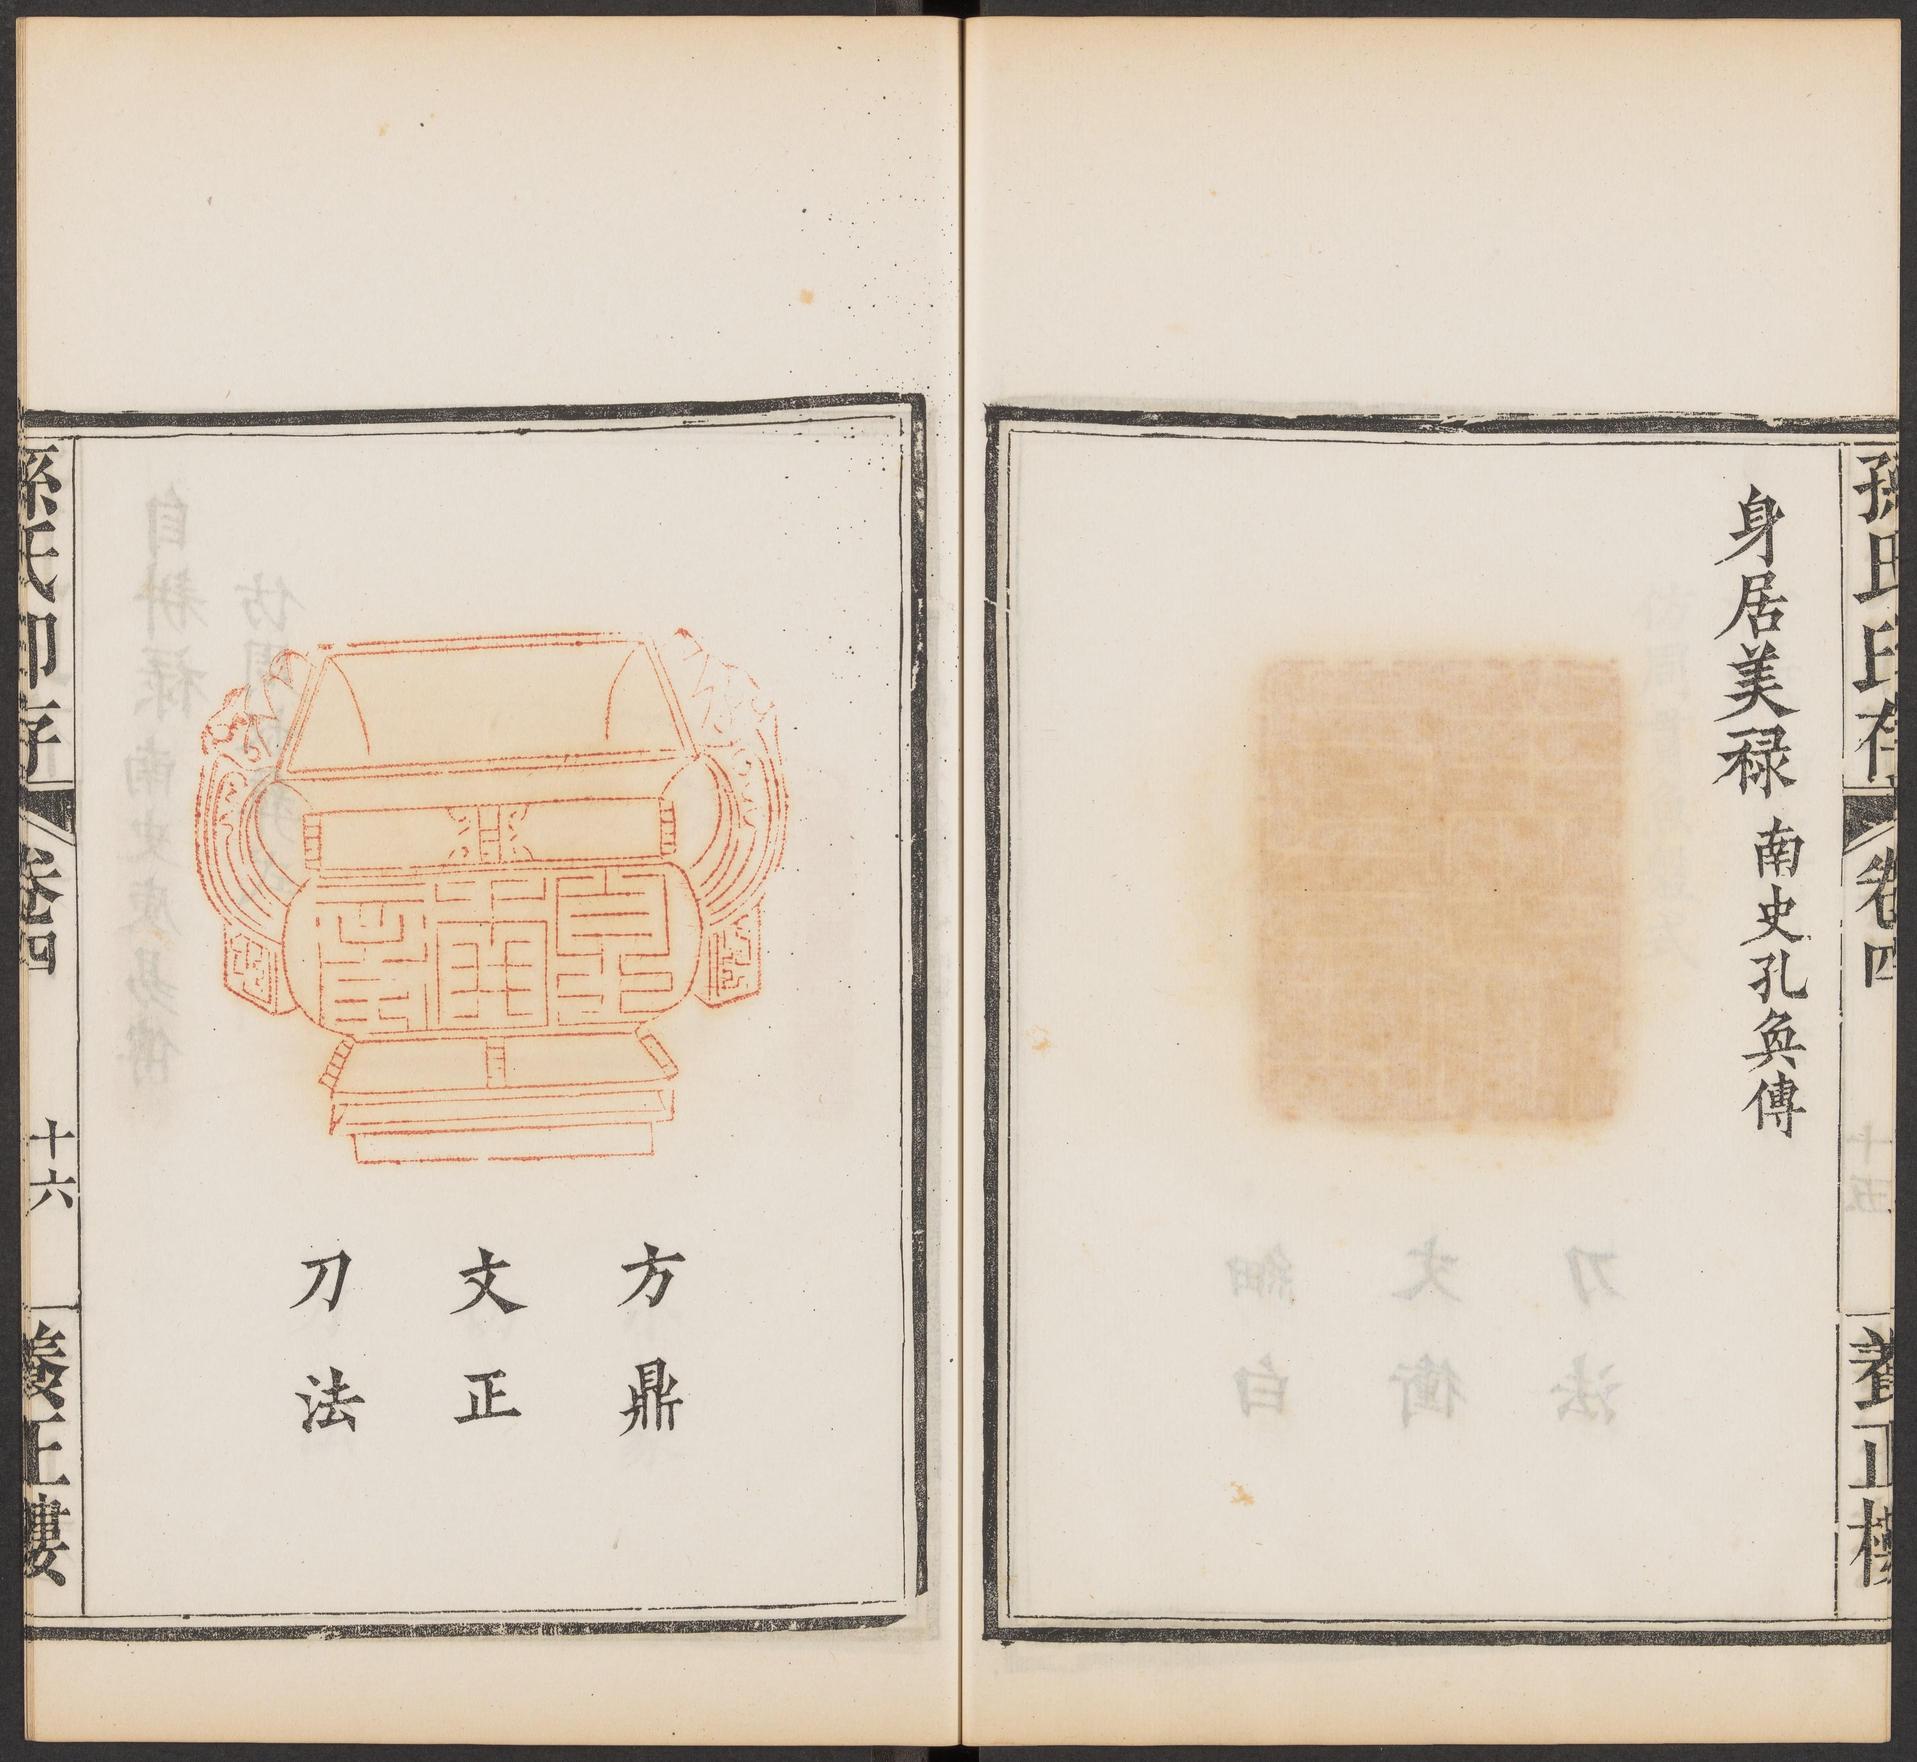 孫氏印存
卷四
養正樓
身居美禄 南史孔奐傳
方鼎
文正
刀法
孫氏印存
卷四
十六
養正樓